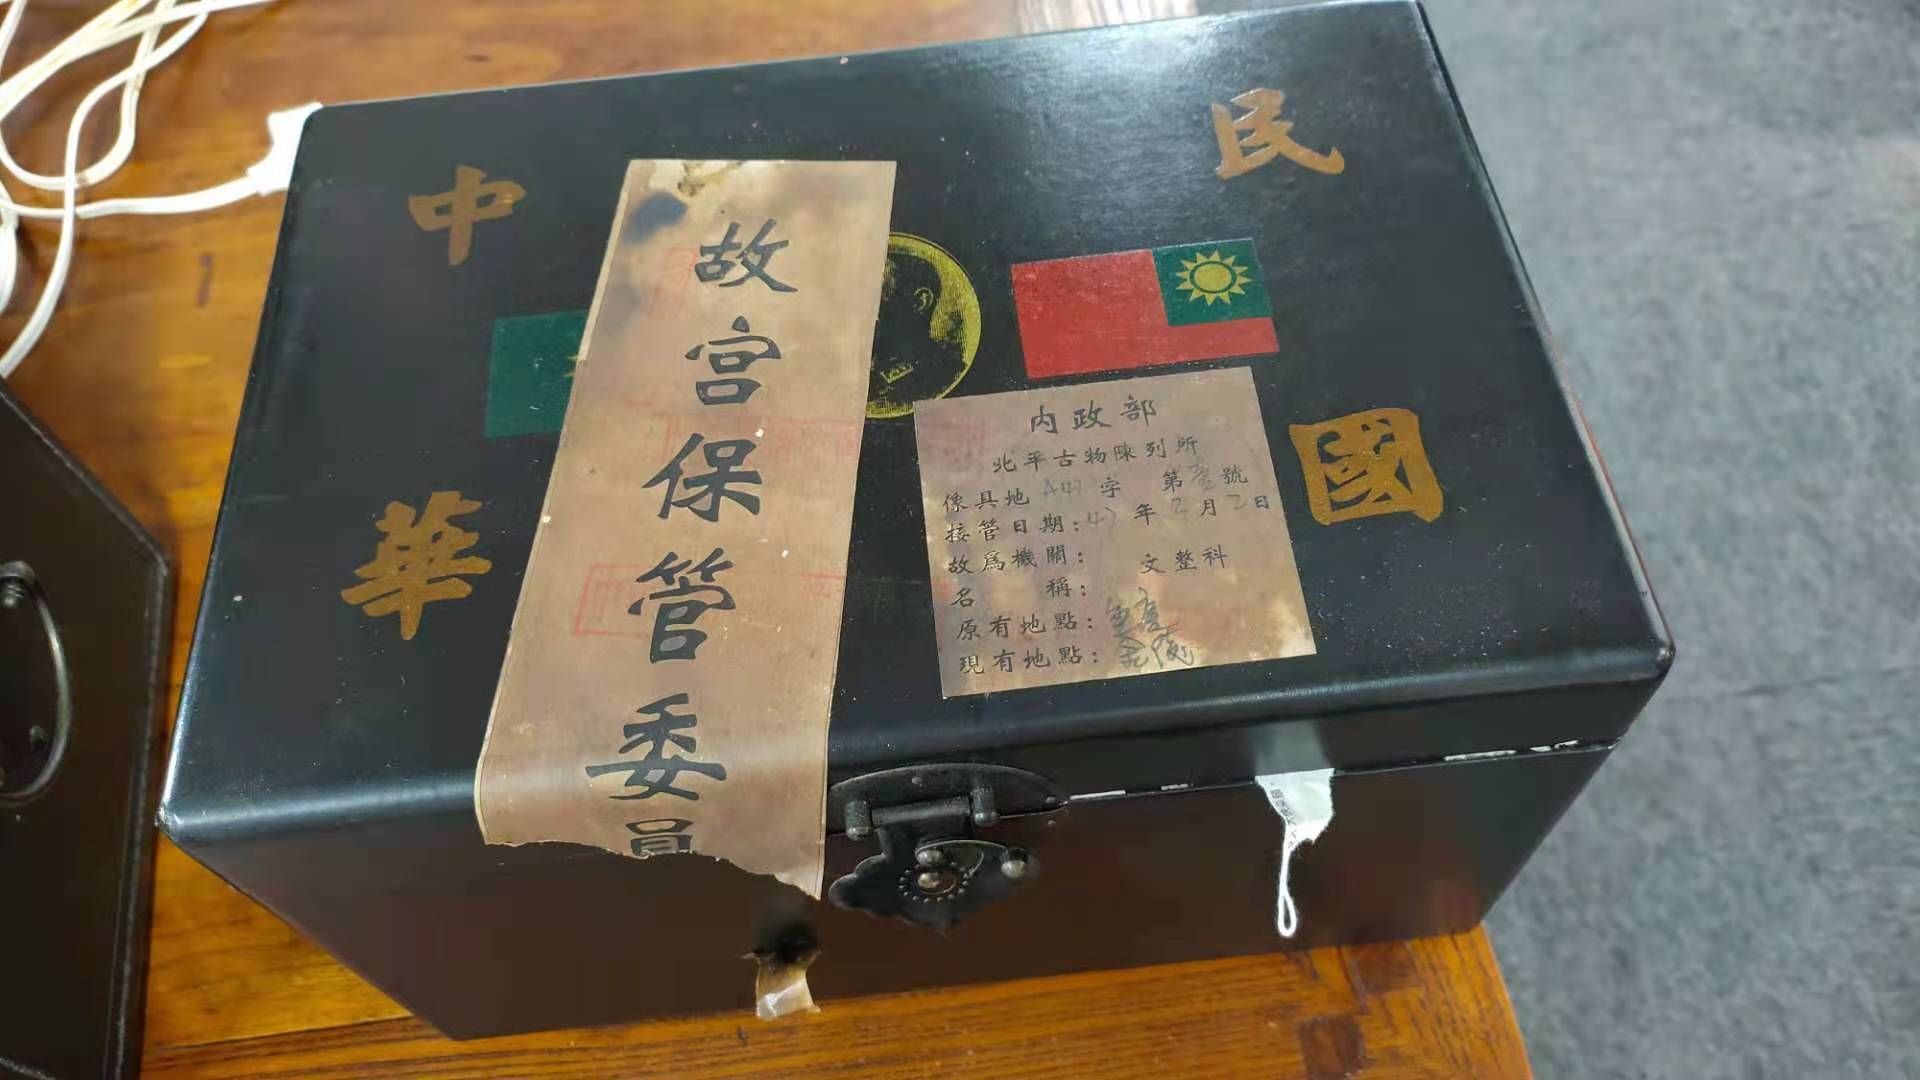 中
華
民
國
故宮保管委員
内政部
北平古物陳列所
傢具地 字 第 號
接管日期: 年 月2日
故爲機關: 文整科
名 稱:
原有地點:
現有地點: